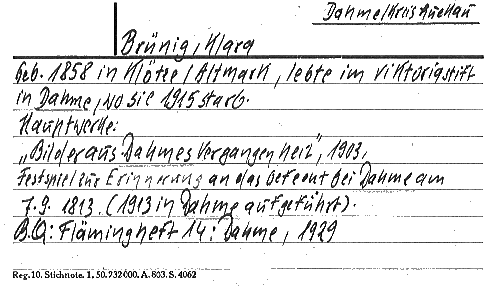 Dahme/Kreis Luckau
Brünig, Klara
Geb. 1858 in Klötze/Altmark, lebte im Viktoriastift
in Dahme, wo sie 1915 starb.
Hauptwerke:
„Bilder aus Dahmes Vergangenheit", 1903.
Festspiel zur Erinnerung an das Gefecht bei Dahme am
7.9. 1813. (1913 in Dahme aufgeführt).
B.Q: Flämingheft 14: Dahme, 1929
Reg. 10. Stichnote. 1, 50. 732 000. A. 803. S. 4062